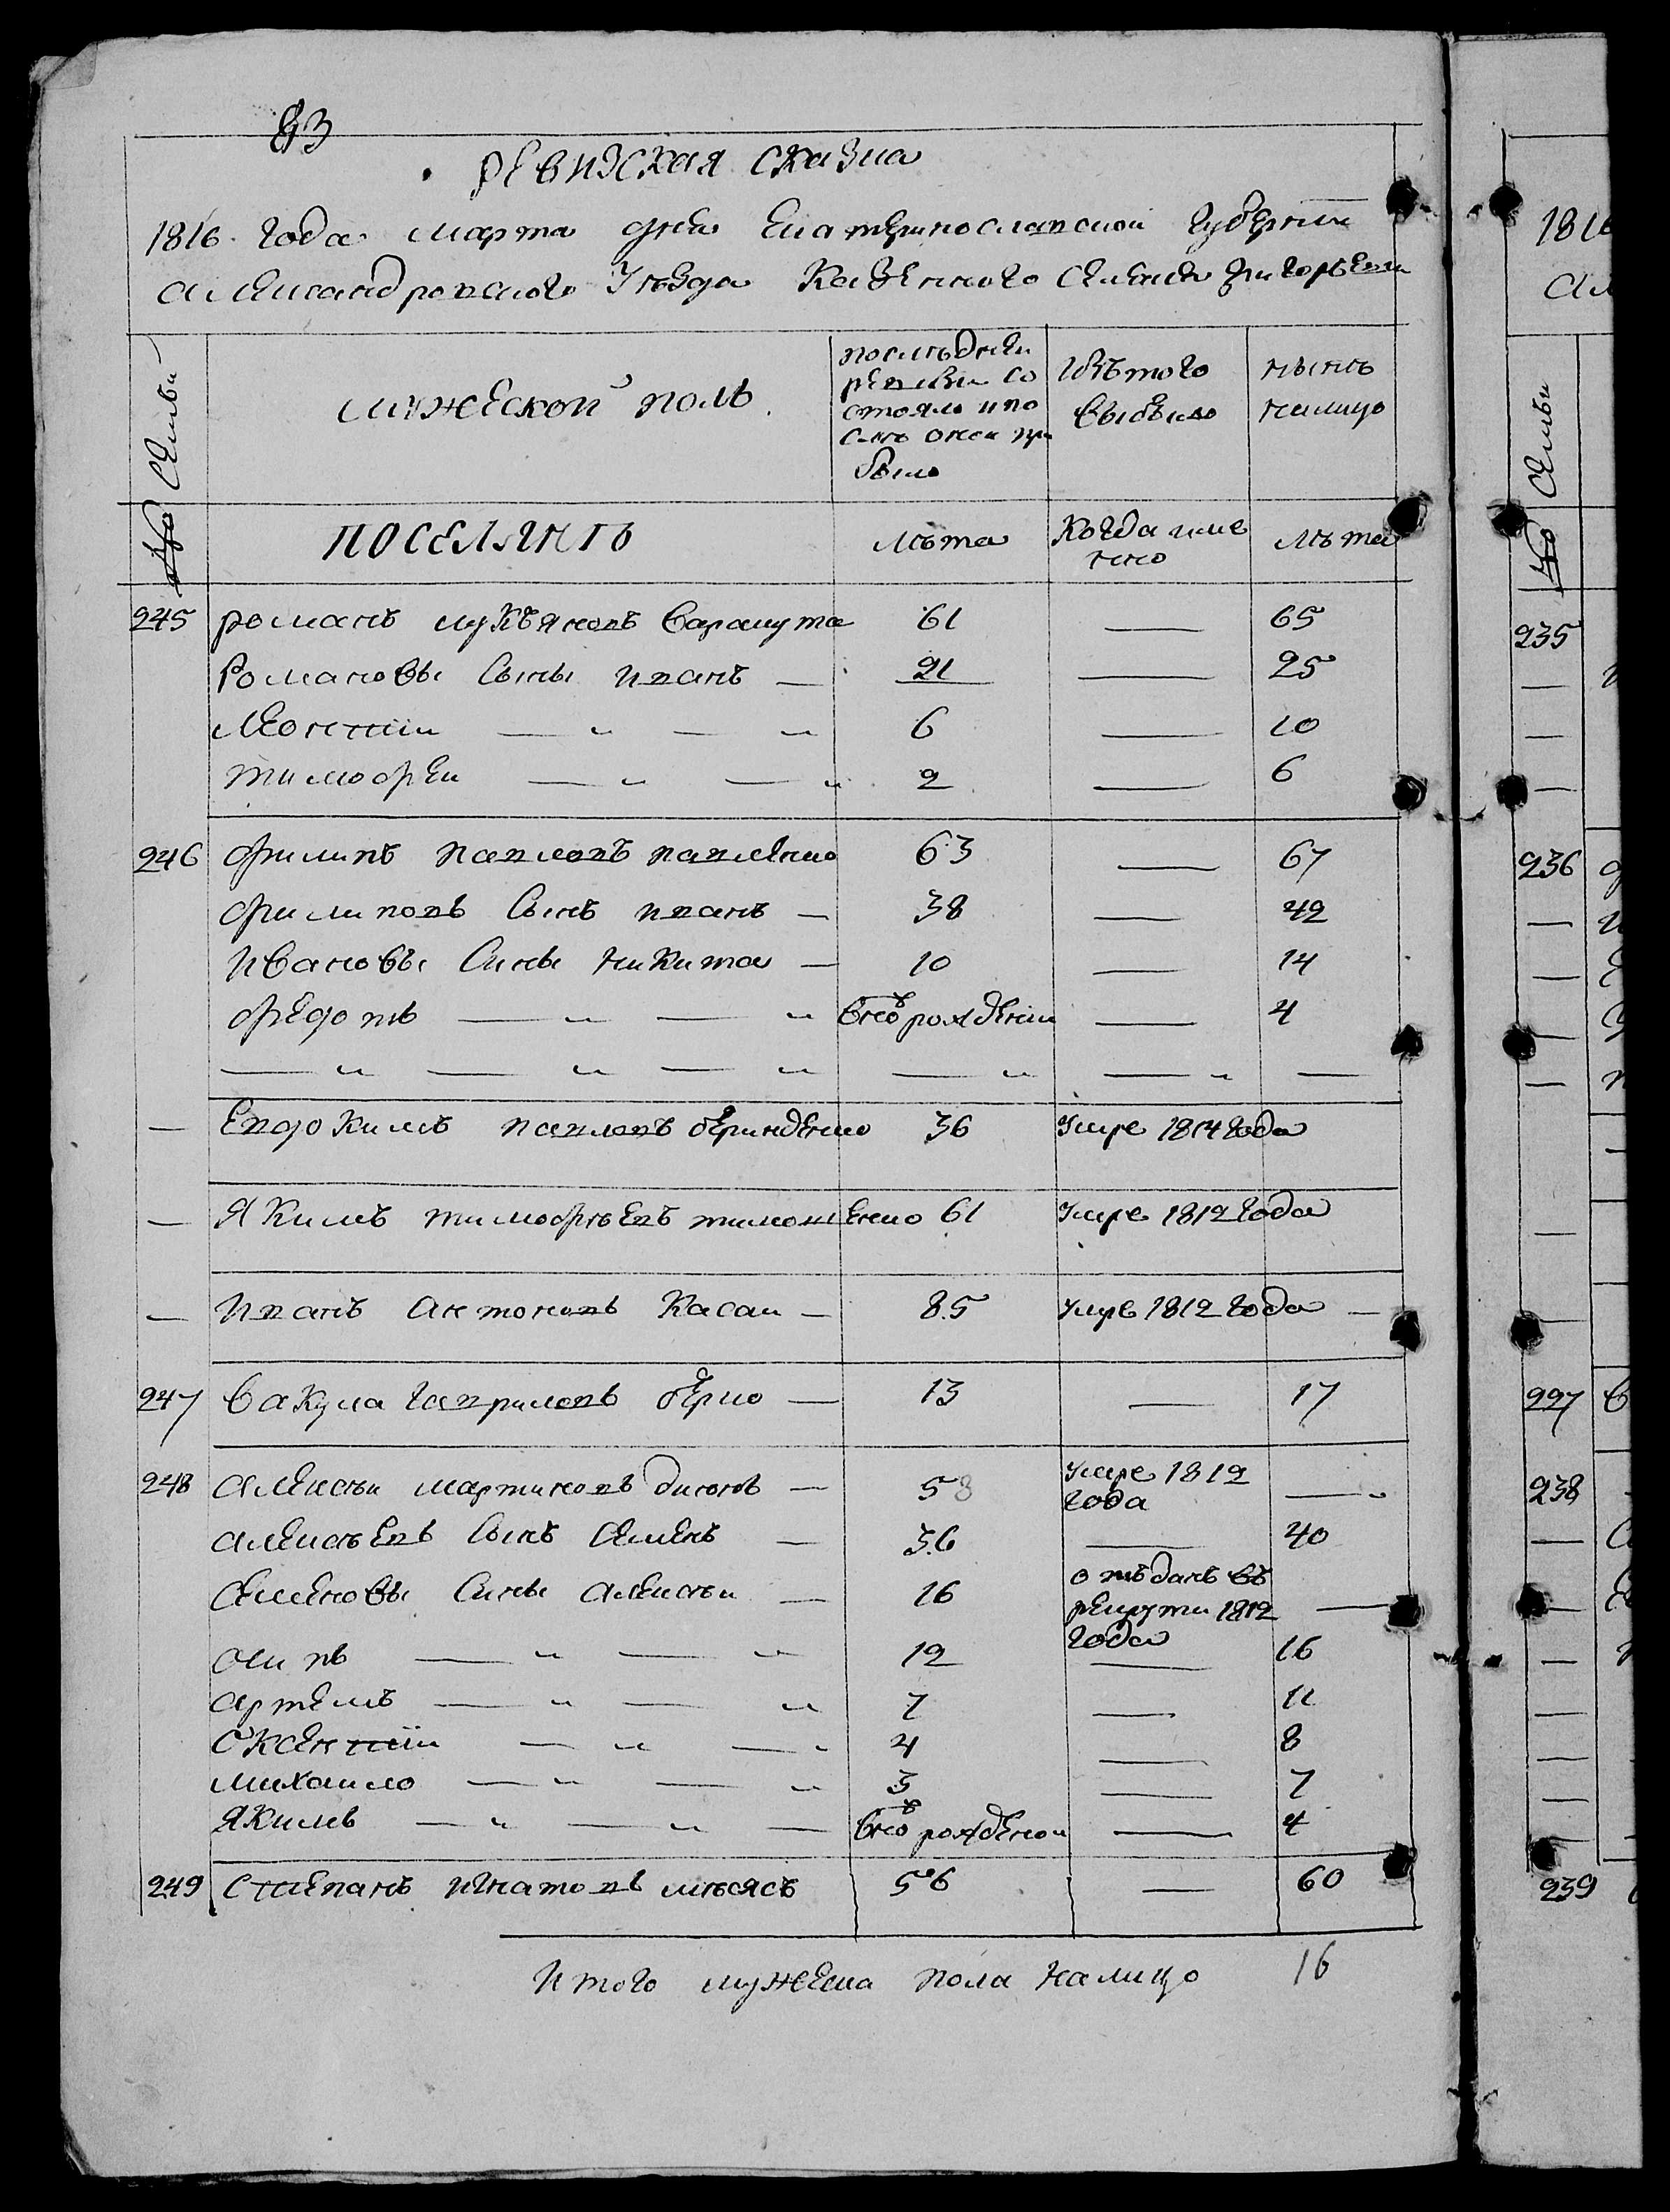 83
ревизская сказка
1816 года марта дня Екатеринославской Губернии
александровского Уезда Казенного селения Григорьевки
№ семьи
мужеской полъ
последней
ревизии со
стояло и по
сле онои при
было
Изъ того
выбыло
ныне
налицо
ПОСЕЛЯНЪ
лѣта
Когда име
нно
лѣта
245 романъ лукъяновъ Варакута 61 — 65
Романовы Сыны иванъ — 21 — 25
леонтии — „ — „ 6 — 10
тимофеи — „ — „ 2 — 6
246 филипъ павловъ павленко 63 — 67
филиповъ Сынъ иванъ — 38 — 42
Ивановы Сины никита — 10 — 14
федотъ — „ — „ Вновъ рожденни — 4
— „ — „ — „ — „ — „ —
— Евдокимъ павловъ беринденко 36 Умре 1814 года
— Якимъ тимофѣевъ тимошенко 61 Умре 1812 года
— Иванъ Антоновъ Касаи — 85 умре 1812 года —
247 Вакула гавриловъ берко — 13 — 17
248 алексѣи мартиновъ диковъ — 58 умре 1812
года — „
алексѣевъ Сынъ Семенъ — 36 — 40
Семеновы Сины алексѣи — 16 отъданъ въ
рекрути 1812
года —
осипъ — „ — „ 12 — 16
артемъ — „ — „ 7 — 11
Оксентии — „ — „ 4 — 8
михаило — „ — „ 3 — 7
Якимъ — „ — „ — Вновъ рожденои — 4
249 Степанъ игнатовъ мѣсясъ 56 — 60
Итого мужеска пола налицо 16
1816
№ семьи
235
—
—
—
236
—
—
—
—
—
—
227
238
—
—
—
—
—
—
—
239